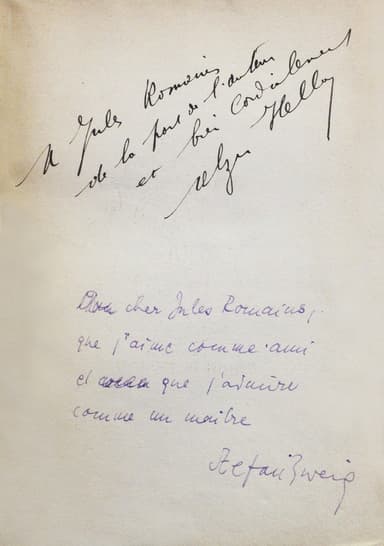 A Jules Romains
de la part de l'auteur
et bien cordialement
Alzir Hella
cher Jules Romains,
que j'aime comme ami
et que j'admire
comme un maître
Stefan Zweig